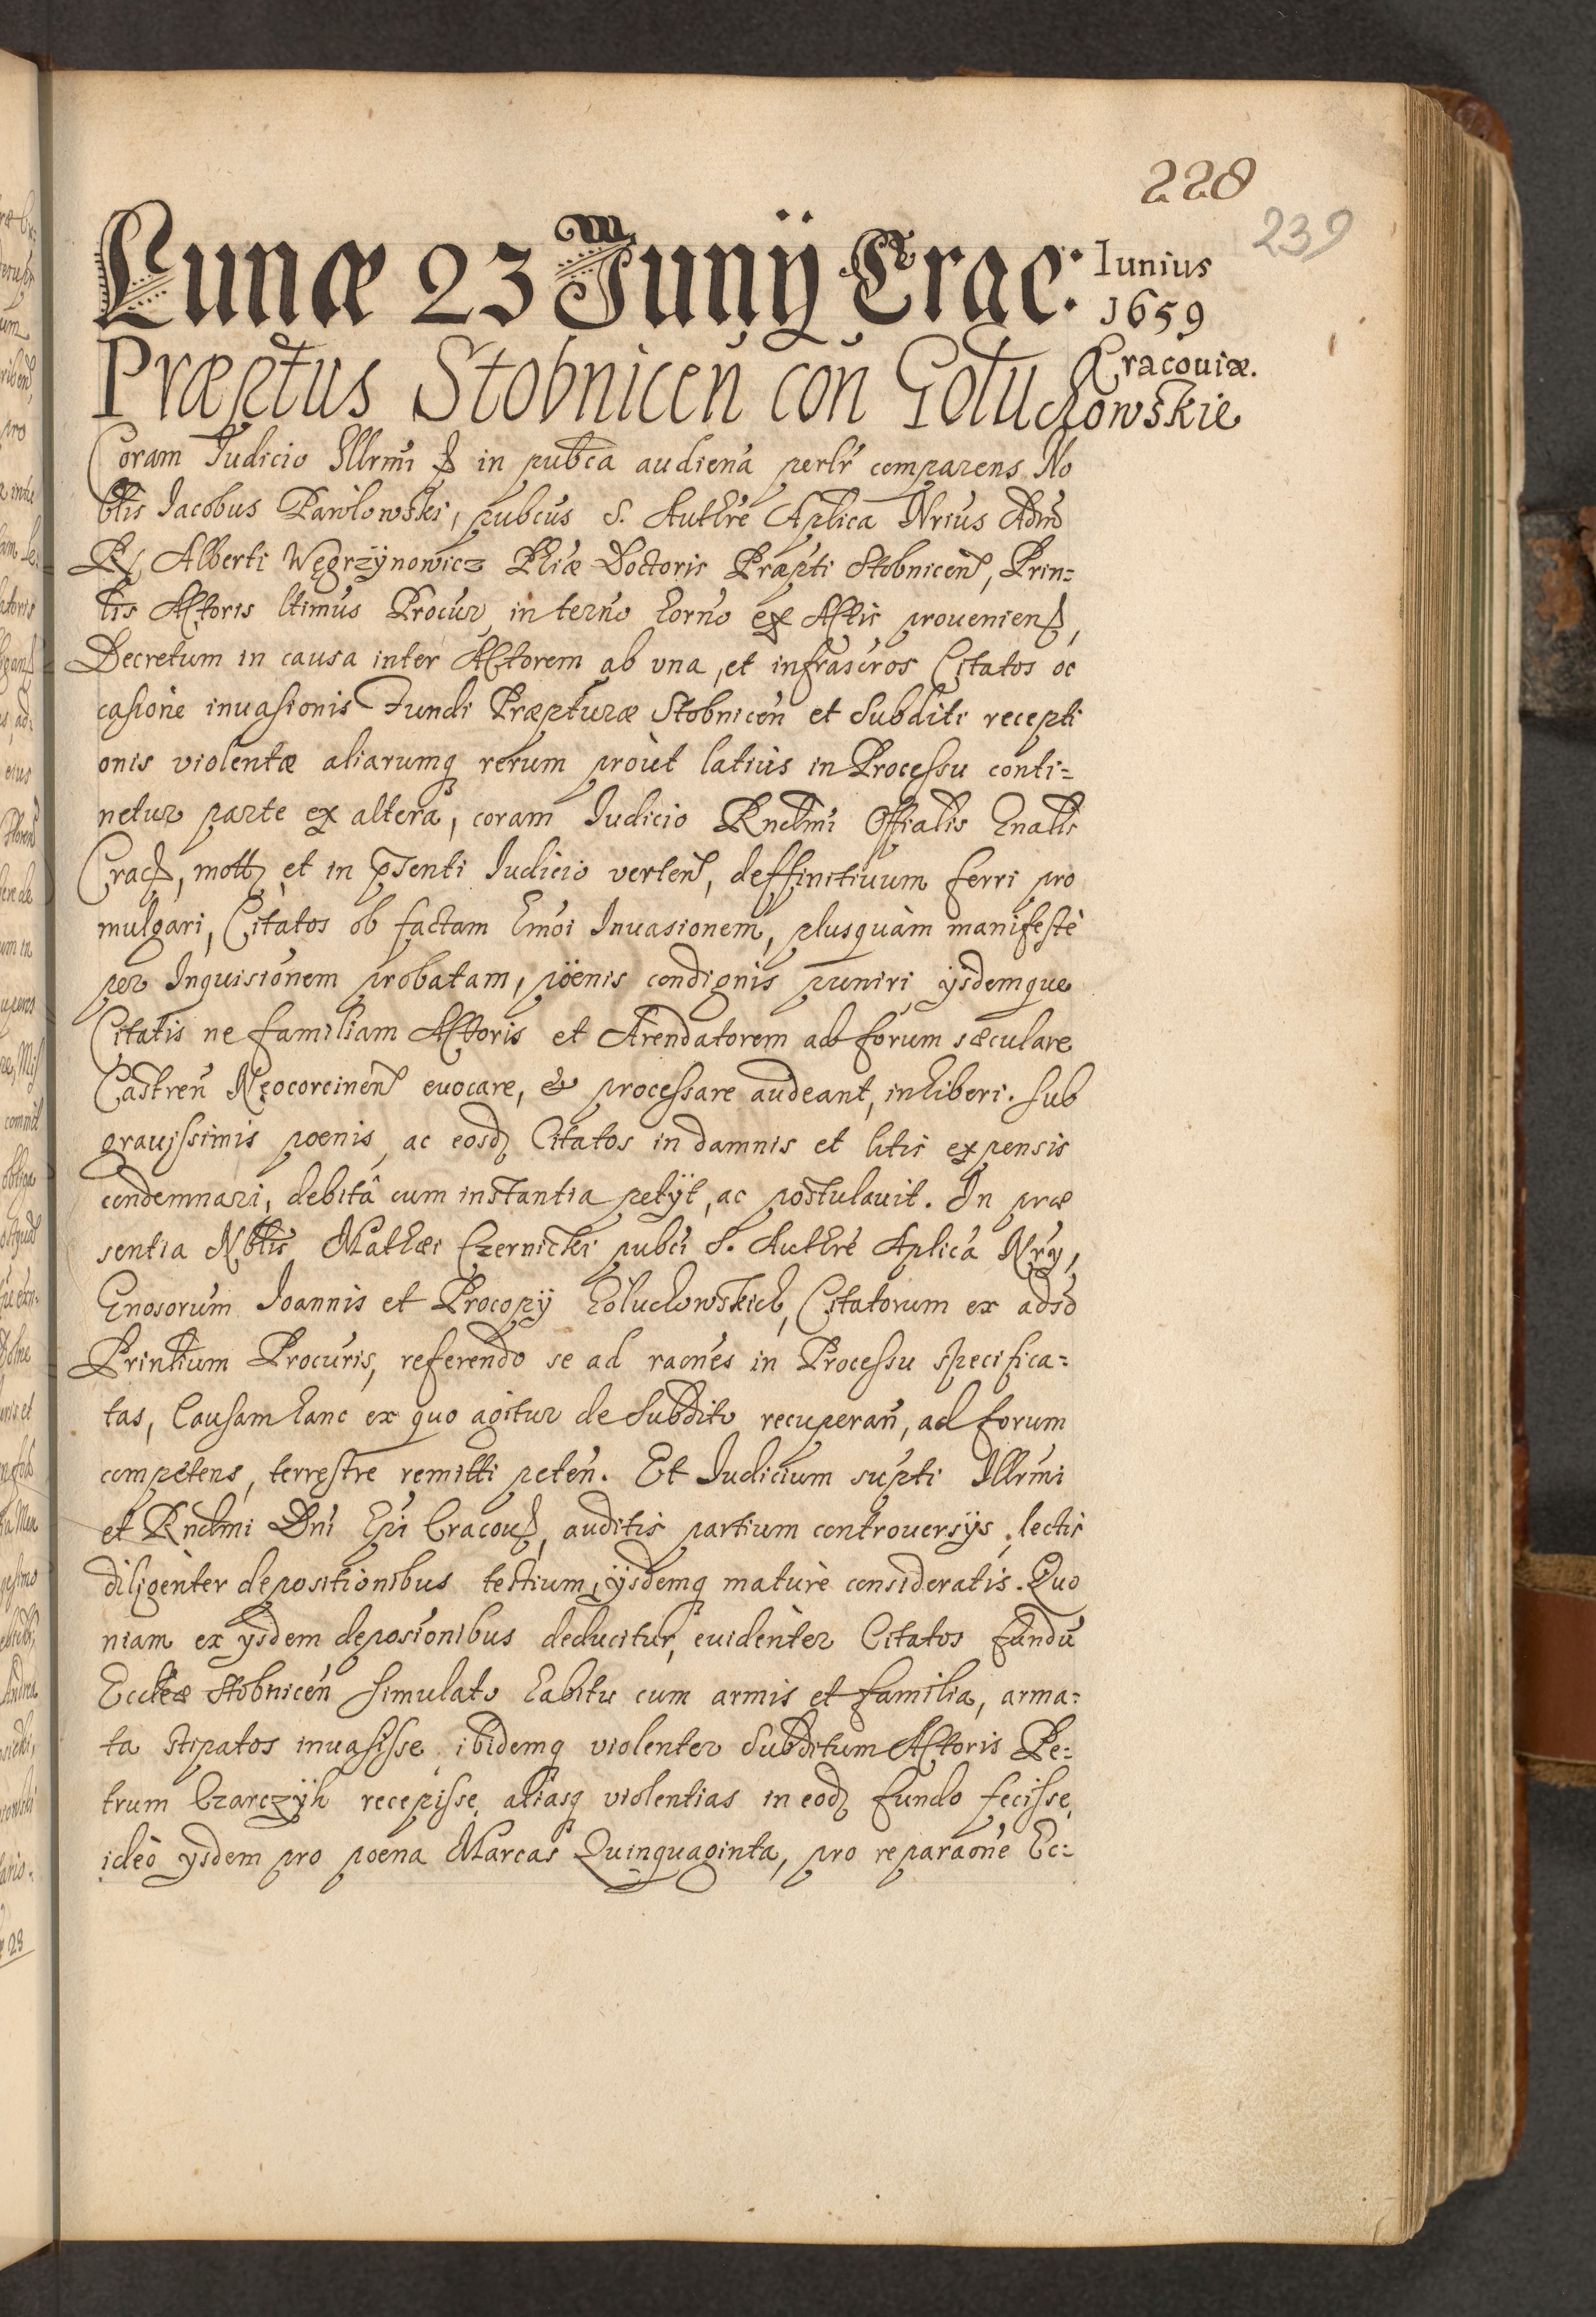 228
239
Lunæ 23 Junij Crac:
Iunius
1659
Cracouiæ.
Præptus Stobnicen con Goluchowskie
Coram Iudicio Illrmi in pubca audiena perlr comparens No
blis Iacobus Pawlowski, pubcus S. Authre Aplica Nrius Adm
R Alberti Węgrzynowicz Phiæ Doctoris Præpti Stobnicen, Prin=
lis Actoris ltimus Procur, in terno horno ex Actis prouenien,
Decretum in causa inter Actorem ab vna, et infrascros Citatos oc
casione inuasionis Fundi Præpturæ Stobnicen et Subditi recepti
onis violentæ aliarumq rerum prout latius in Processu conti=
netur parte ex altera, coram Iudicio Rndmi Offialis Gnalis
Crac, mott, et in psenti Iudicio verten, deffinitiuum ferri pro
mulgari, Citatos ob factam Emoi Inuasionem, plusquàm manifestè
per Inquisionem probatam, pöenis condignis puniri ijsdemque
Citatis ne familiam Actoris et Arendatorem ad forum sæculare
Castren Neocorcinen euocare, & processare audeant, inhiberi. Sub
grauissimis poenis, ac eosd Citatos in damnis et litis expensis
condemnari, debitâ cum instantia petijt, ac postulauit. In præ
sentia Nblis Mathæi Czernicki pubci S. Authre Aplica Nrij,
Gnosorum Ioannis et Procopij Goluchowskich, Citatorum ex adso
Prinlium Procuris, referendo se ad raones in Processu specifica=
tas, Causam hanc ex quo agitur de Subdito recuperan, ad forum
competens, terrestre remitti peten. Et Iudicium supti Illrmi
et Rndmi Dni Epi Cracou, auditis partium controuersijs, lectis
diligènter depositionibus testium, ijsdemq maturè consideratis. Quo
niam ex ijsdem deposionibus deducitur, euidènter Citatos fundu
Eccleæ Stobnicen simulato habitu cum armis et familia, arma=
ta stipatos inuasisse, ibidemq violenter Subditum Actoris Pe=
trum Czarczyk recepisse, aliasq violentias in eod fundo fecisse,
ideò ijsdem pro poena Marcas Quinquaginta, pro reparaone Ec=